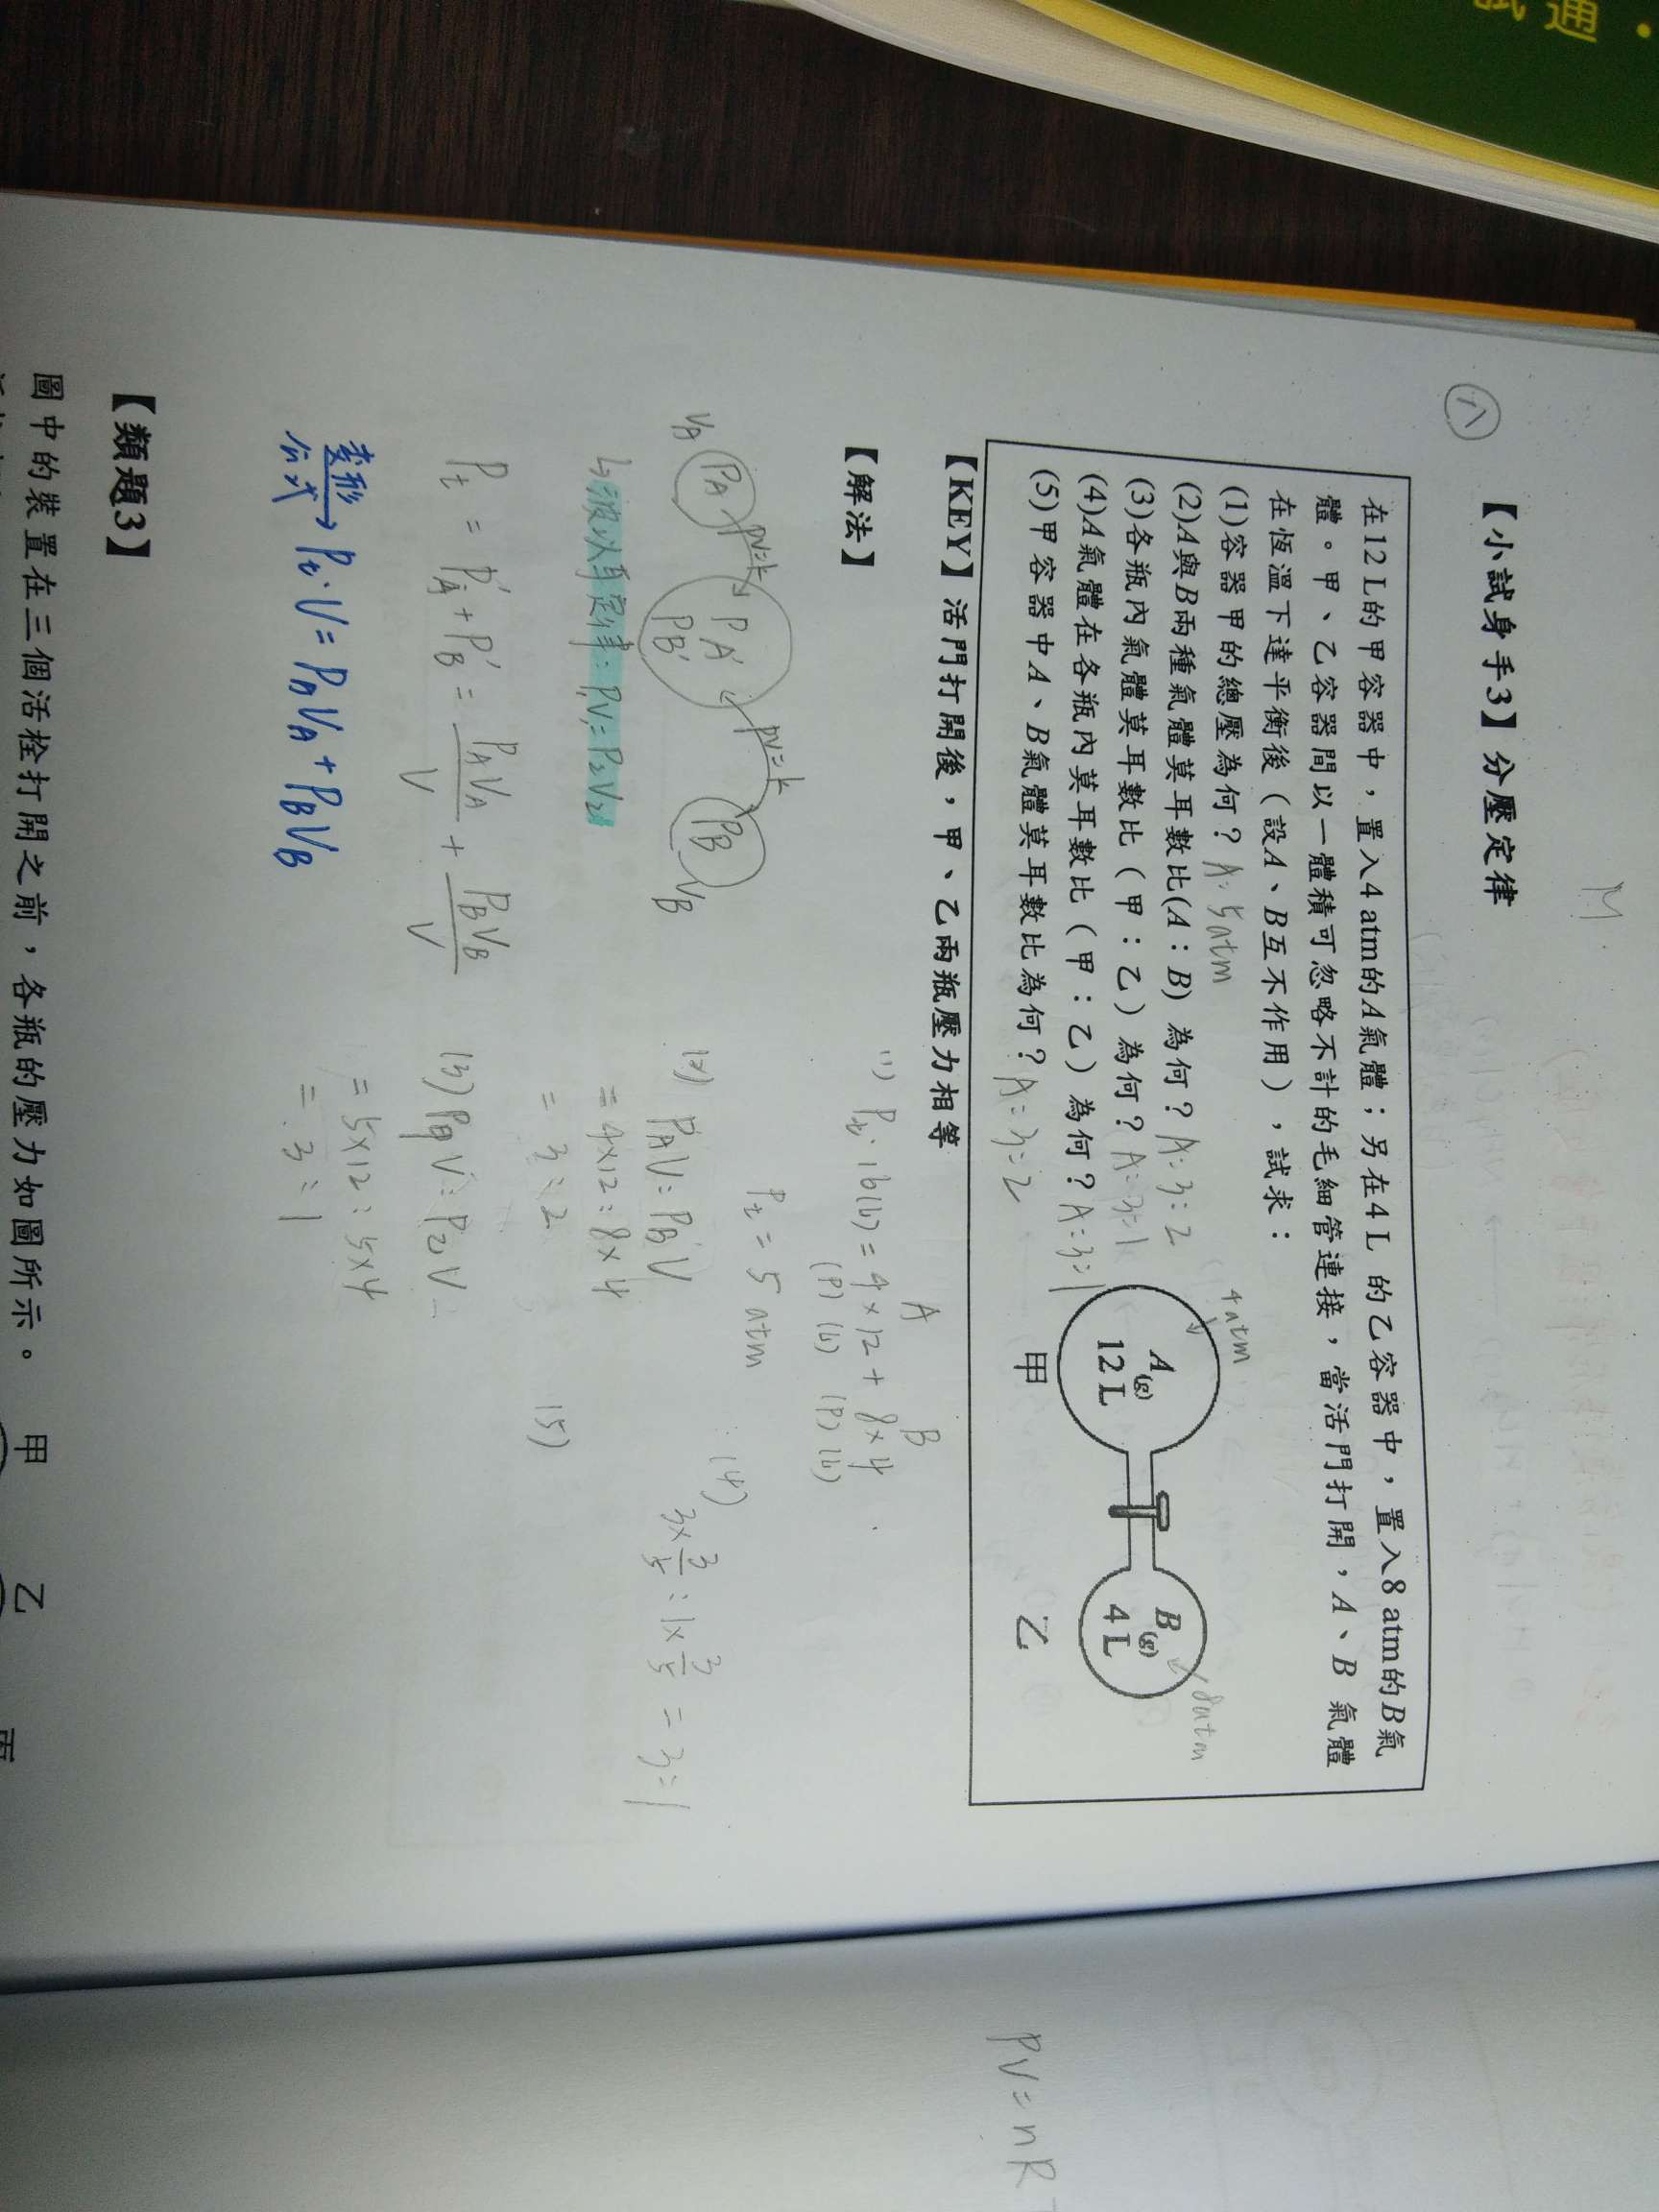 試通．
M.
【小試身手3】分壓定律
在12 L的甲容器中，置入4 atm的A氣體；另在4 L 的乙容器中，置入8 atm的B氣
體。甲、乙容器間以一體積可忽略不計的毛細管連接，當活門打開，A、B 氣體
在恆溫下達平衡後（設A、B互不作用），試求：
(1)容器甲的總壓為何？A: 5atm
(2)A與B兩種氣體莫耳數比(A：B) 為何？A: 3:2
(3)各瓶內氣體莫耳數比（甲：乙）為何？A: 3:1
(4)A氣體在各瓶內莫耳數比（甲：乙）為何？A: 3:1
(5)甲容器中A、B氣體莫耳數比為何？A: 3:2
4atm
A(g)
12 L
甲
8atm
B(g)
4 L
乙
【KEY】活門打開後，甲、乙兩瓶壓力相等
【解法】
VA PA PV=k PA' PB' PV=k PB VB
↳波以耳定律: P₁V₁=P₂V₂
Pt = PA' + PB' = PAVA/V + PBVB/V
變形公式→ Pt·V = PAVA + PBVB
A B
(1) Pt·16(L) = 4×12 + 8×4
(P) (L) (P) (L)
Pt = 5 atm
(2) PAV : PBV
= 4×12 : 8×4
= 3 : 2
(3) P甲V : P乙V
= 5×12 : 5×4
= 3 : 1
(4)
3×3/5 : 1×3/5 = 3:1
(5)
【類題3】
圖中的裝置在三個活栓打開之前，各瓶的壓力如圖所示。
甲 乙 丙
PV=nR